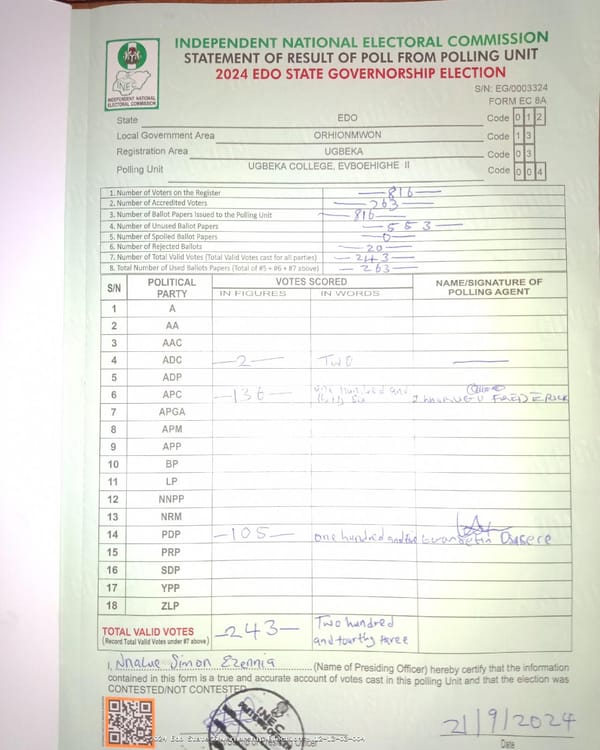 INDEPENDENT NATIONAL ELECTORAL COMMISSION
STATEMENT OF RESULT OF POLL FROM POLLING UNIT
2024 EDO STATE GOVERNORSHIP ELECTION
INEC
INDEPENDENT NATIONAL
ELECTORAL COMMISSION
S/N: EG/0003324
FORM EC 8A
State EDO Code 0 1 2
Local Government Area ORHIONMWON Code 1 3
Registration Area UGBEKA Code 0 3
Polling Unit UGBEKA COLLEGE, EVBOEHIGHE II Code 0 0 4
1. Number of Voters on the Register 816
2. Number of Accredited Voters 263
3. Number of Ballot Papers Issued to the Polling Unit 816
4. Number of Unused Ballot Papers 553
5. Number of Spoiled Ballot Papers 0
6. Number of Rejected Ballots 20
7. Number of Total Valid Votes (Total Valid Votes cast for all parties) 243
8. Total Number of Used Ballots Papers (Total of #5 + #6 + #7 above) 263
S/N POLITICAL PARTY VOTES SCORED NAME/SIGNATURE OF POLLING AGENT
IN FIGURES IN WORDS
1 A
2 AA
3 AAC
4 ADC 2 Two
5 ADP
6 APC 136 one hundred and FREDERICK
7 APGA
8 APM
9 APP
10 BP
11 LP
12 NNPP
13 NRM
14 PDP 105 one hundred and
15 PRP
16 SDP
17 YPP
18 ZLP
TOTAL VALID VOTES 243 Two hundred
(Record Total Valid Votes under #7 above) and fourthy three
I, Nnalue Simon Ezennia (Name of Presiding Officer) hereby certify that the information
contained in this form is a true and accurate account of votes cast in this polling Unit and that the election was
CONTESTED/NOT CONTESTED
INEC
21/9/2024
Date